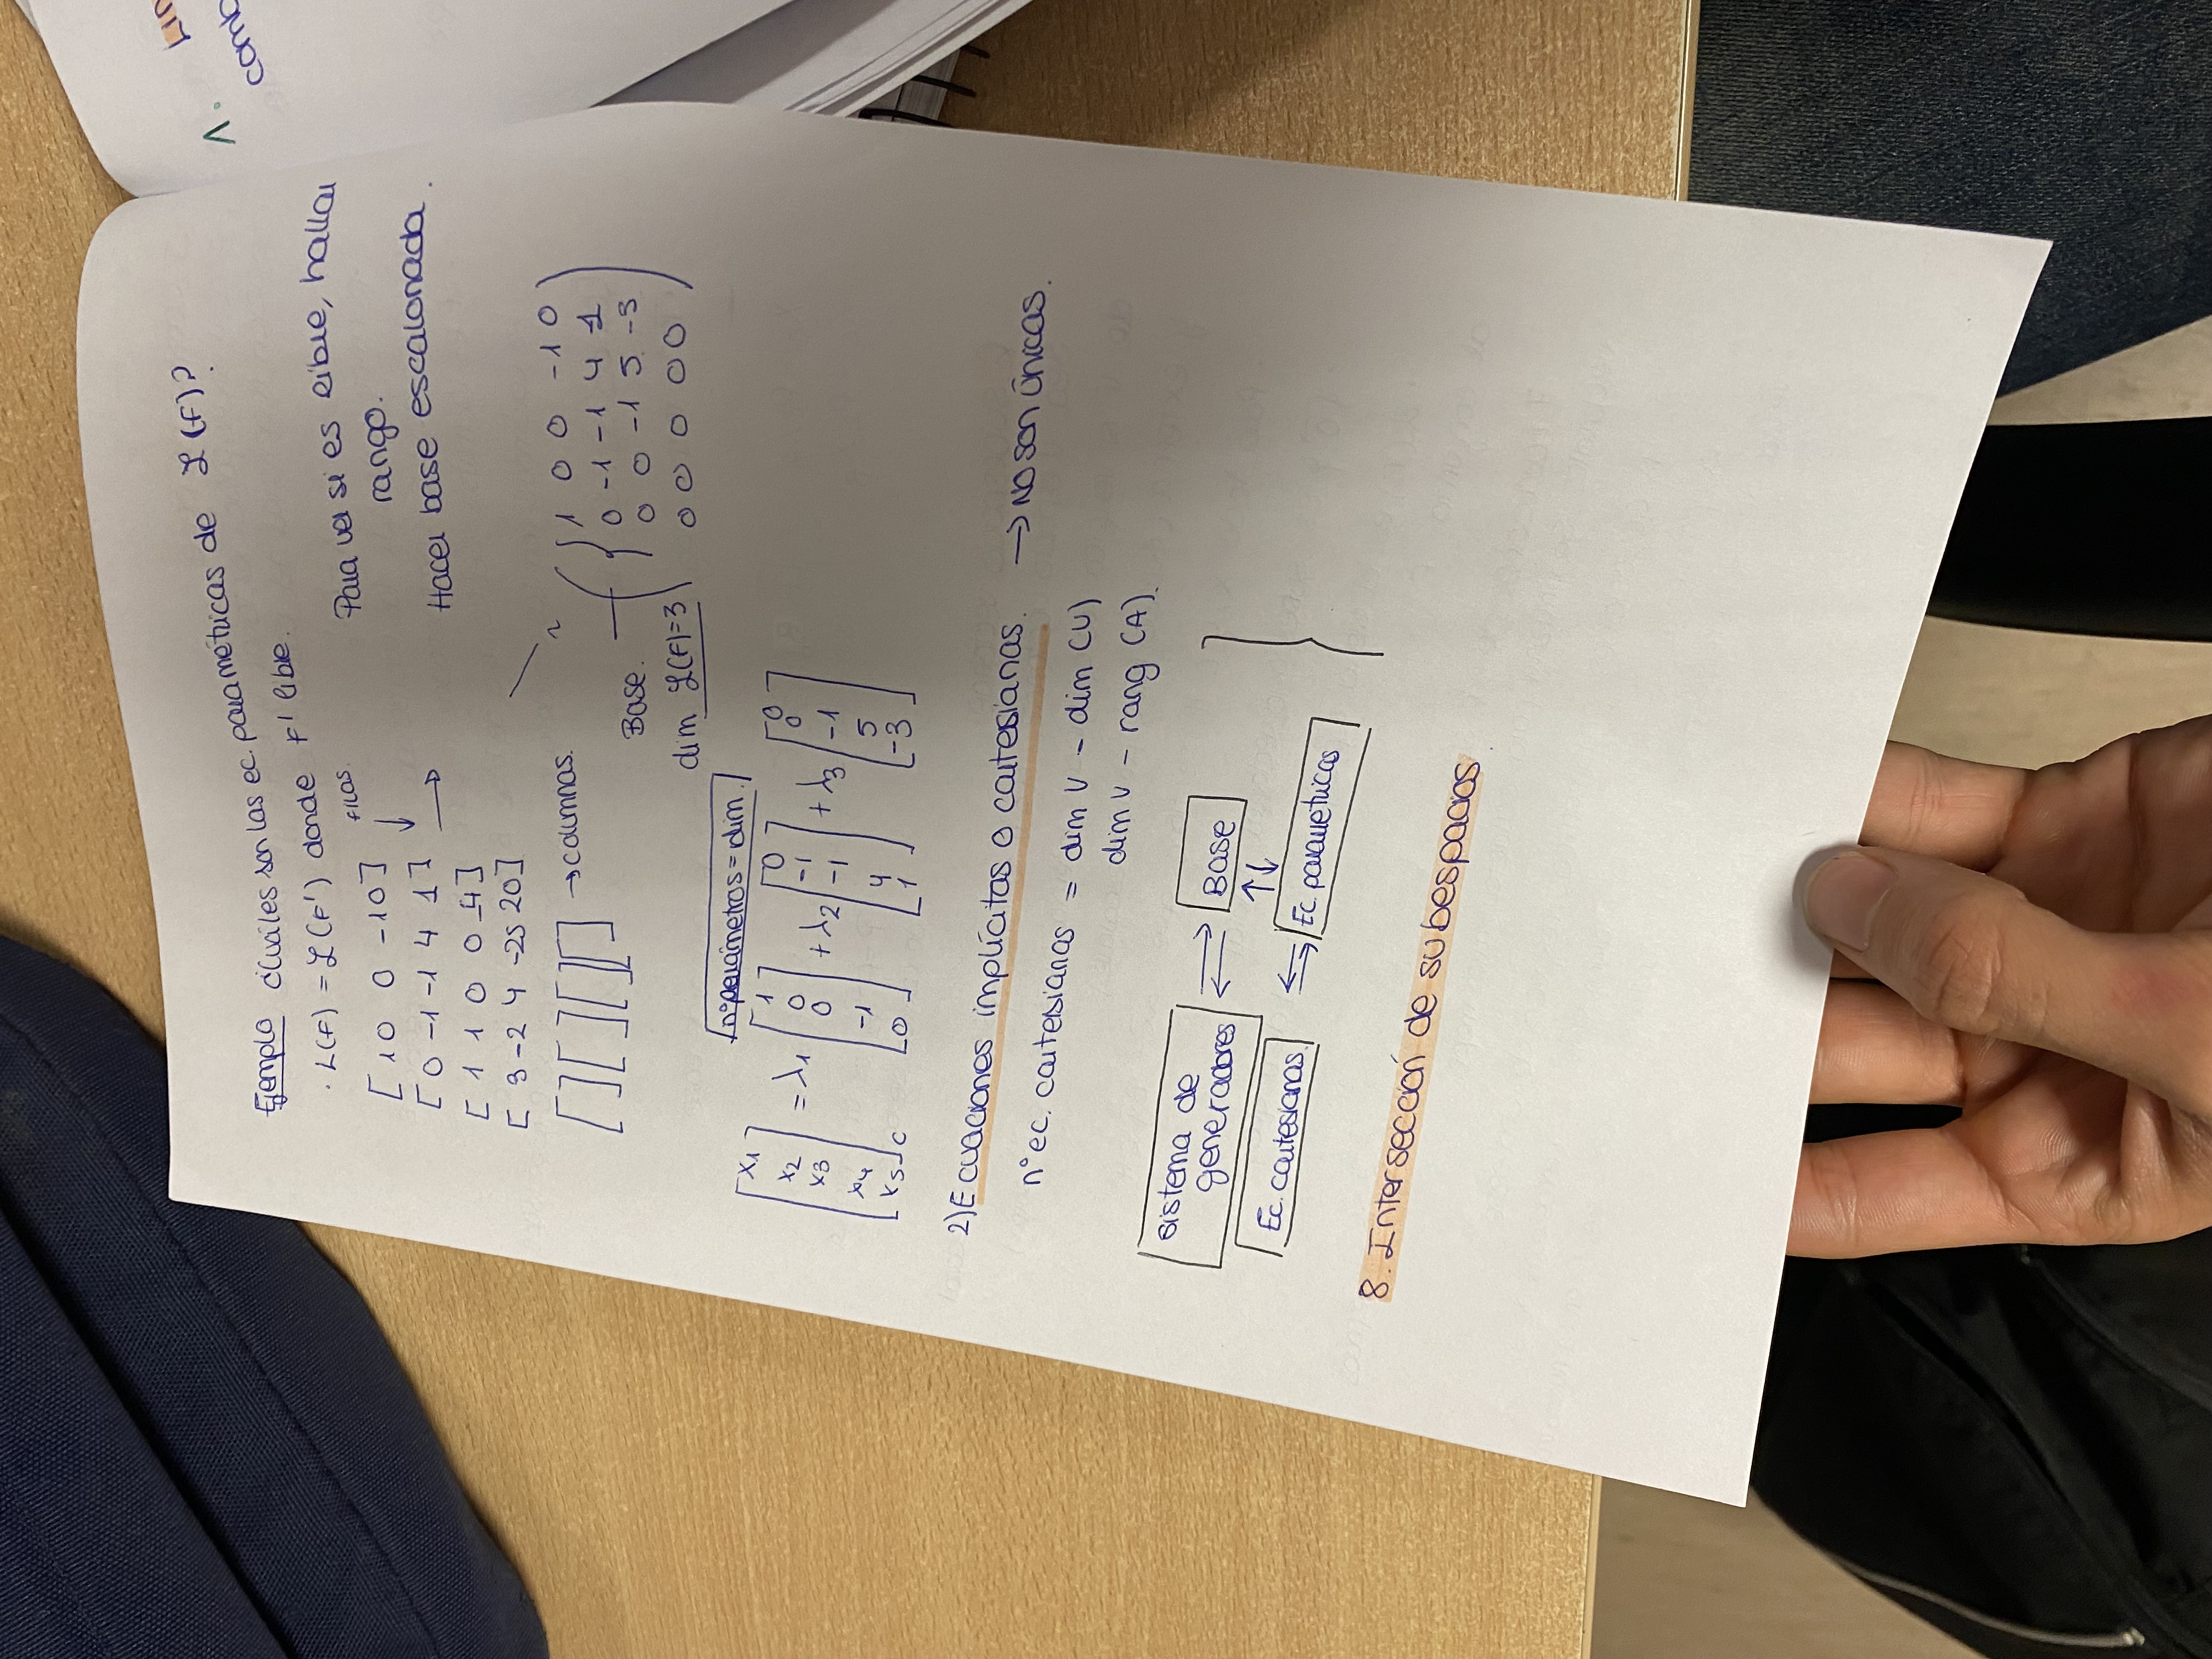 Ejemplo ¿Cuáles son las ec. paramétricas de ℒ(F)?
· L(F) = ℒ(F') donde F' libre.
filas.
[ 1 0 0 -1 0 ] ↓
[ 0 -1 -1 4 1 ] →
[ 1 1 0 0 -4 ]
[ 3 -2 4 -25 20 ]
[ ] [ ] [ ] [ ] → columnas.
Para ver si es libre, hallar
rango.
Hacer base escalonada.
~
1 0 0 -1 0
0 -1 -1 4 1
0 0 -1 5 -3
0 0 0 0 0
Base.
dim ℒ(F)=3
nº parámetros = dim.
[x1 x2 x3 x4 x5]c = λ1 [1 0 0 -1 0] + λ2 [0 -1 -1 4 1] + λ3 [0 0 -1 5 -3]
2) Ecuaciones implícitas o cartesianas. → No son únicas.
nº ec. cartesianas = dim V - dim (U)
dim V - rang (A).
sistema de
generadores ⇄ Base
↑↓
Ec. cartesianas. ⇆ Ec. paramétricas
8. Intersección de subespacios.
1.
Lin
comb